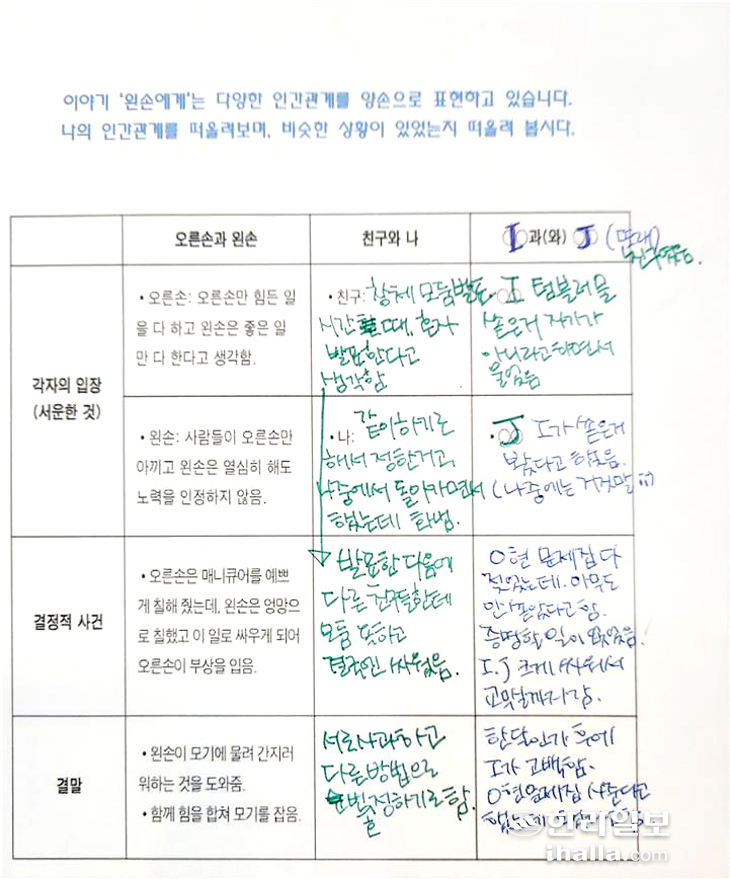 이야기 '왼손에게'는 다양한 인간관계를 양손으로 표현하고 있습니다.
나의 인간관계를 떠올려보며, 비슷한 상황이 있었는지 떠올려 봅시다.
오른손과 왼손
친구와 나
I 과(와) J
각자의 입장
(서운한 것)
• 오른손: 오른손만 힘든 일
을 다 하고 왼손은 좋은 일
만 다 한다고 생각함.
• 친구: 모둠발표
시간 때, 혼자
발표한다고
생각함
I 텀블러 물
쏟은거 자기가
아니라고 하면서
• 왼손: 사람들이 오른손만
아끼고 왼손은 열심히 해도
노력을 인정하지 않음.
• 나: 같이하기로
해서 정한거고,
나중에서 돌아가면서
했는데 화냄.
• J I가 쏟은거
봤다고 했음.
(나중에는 거짓말
결정적 사건
• 오른손은 매니큐어를 예쁘
게 칠해 줬는데, 왼손은 엉망으
로 칠했고 이 일로 싸우게 되어
오른손이 부상을 입음.
발표한 다음에
다른 친구들한테
모둠 욕하고
결국엔 싸웠음.
O현 문제집 다
젖었는데. 아무도
안 쏟았다고 함.
증명할 일이 없었음.
I. J 크게 싸워서
결말
• 왼손이 모기에 물려 간지러
워하는 것을 도와줌.
• 함께 힘을 합쳐 모기를 잡음.
서로 사과하고
다른방법으로
정하기로 함.
한달인가 후에
I가 고백함.
O현 문제집 사준다고
했는데
한라일보
ihalla.com